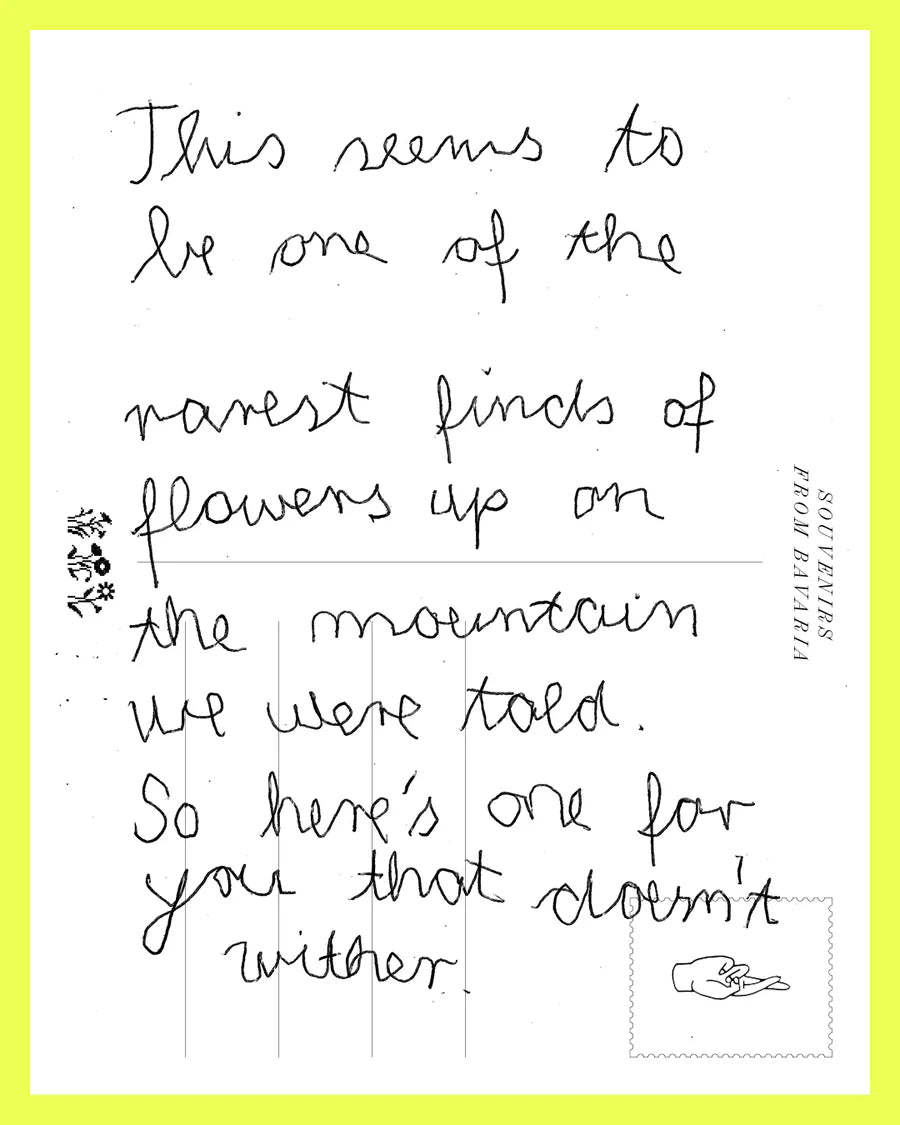 This seems to
be one of the
rarest finds of
flowers up on
the mountain
we were told.
So here's one for
you that doesn't
wither.
SOUVENIRS
FROM BAVARIA